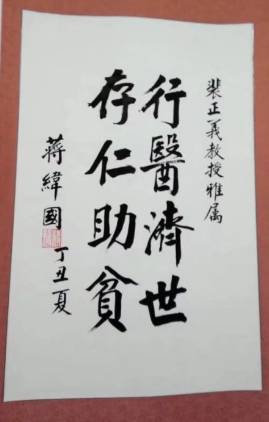 裴正義教授雅属
行醫濟世
存仁助貧
蔣緯國
丁丑夏